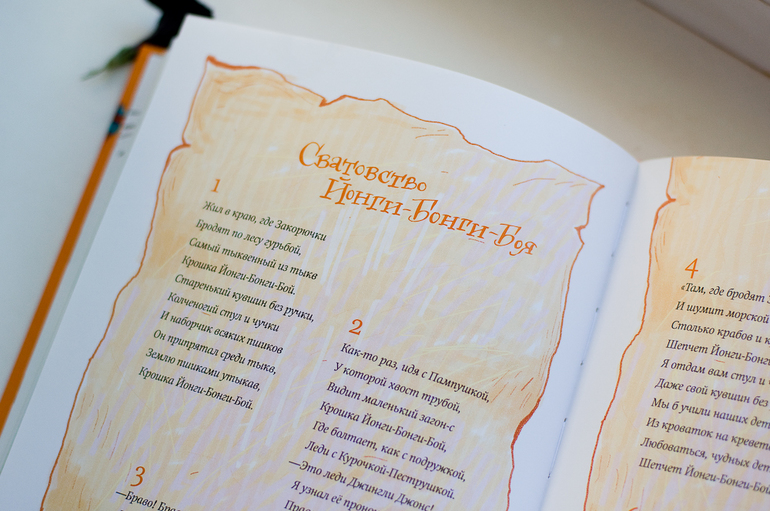 Сватовство
Йонги-Бонги-Боя
1
Жил в краю, где Закорючки
Бродят по лесу гурьбой,
Самый тыквенный из тыкв
Крошка Йонги-Бонги-Бой.
Старенький кувшин без ручки,
Колченогий стул и чучки
И наборчик всяких пшиков
Он припрятал среди тыкв,
Землю пшиками утыкав,
Крошка Йонги-Бонги-Бой.
2
Как-то раз, идя с Пампушкой,
У которой хвост трубой,
Видит маленький загон-с
Крошка Йонги-Бонги-Бой,
Где болтает, как с подружкой,
Леди с Курочкой-Пеструшкой.
—Это леди Джингли Джонс!
Я узнал её
3
—Браво!
4
«Там, где бродят
И шумит морской
Столько крабов и
Шепчет
Я отдам вам стул и
Даже свой кувшин без
Мы б учили наших
Из кроваток на
Любоваться, чудных
Шепчет Йонги-Бонги-Бой